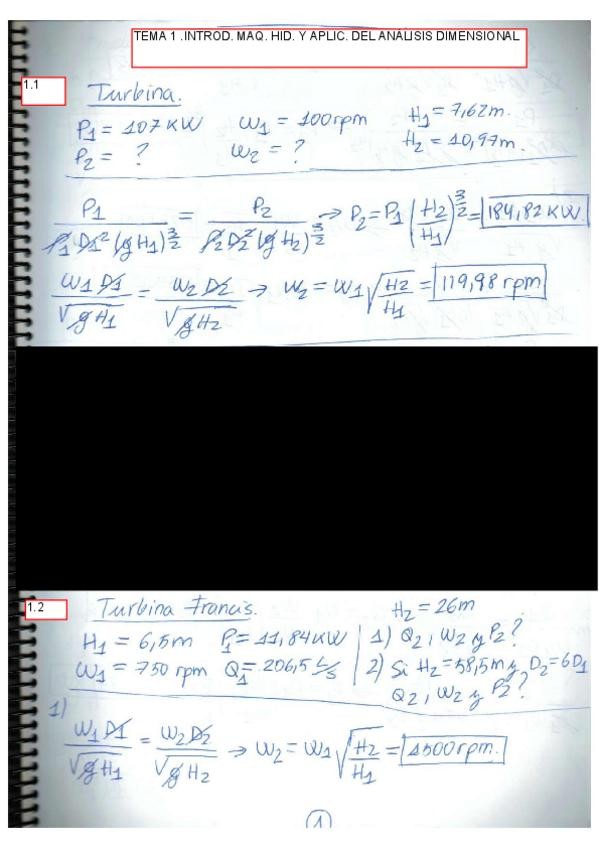 TEMA 1 .INTROD. MAQ. HID. Y APLIC. DEL ANALISIS DIMENSIONAL
1.1 Turbina.
P1 = 107 KW W1 = 100rpm H1 = 7,62m.
P2 = ? W2 = ? H2 = 10,97m.
P1 / ρ1 D1² (g H1)^3/2 = P2 / ρ2 D2² (g H2)^3/2 → P2 = P1 (H2/H1)^3/2 = 184,82 KW
W1 D1 / √g H1 = W2 D2 / √g H2 → W2 = W1 √H2/H1 = 119,98 rpm
1.2 Turbina Francis. H2 = 26m
H1 = 6,5m P1 = 11,84KW 1) Q2, W2 y P2?
W1 = 750 rpm Q1 = 206,5 L/s 2) Si H2 = 58,5m y D2 = 6D1
Q2, W2 y P2?
1)
W1 D1 / √g H1 = W2 D2 / √g H2 → W2 = W1 √H2/H1 = 1500rpm.
1